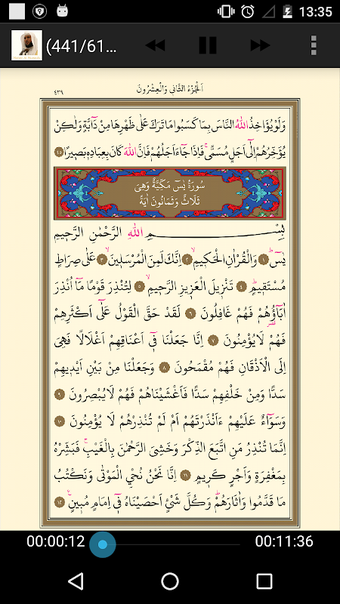 13:35
(441/61...
٤٣٩ اَلْجُزْءُ الثَّانِي وَالْعِشْرُونَ
وَلَوْ يُؤَاخِذُ اللّٰهُ النَّاسَ بِمَا كَسَبُوا مَا تَرَكَ عَلٰى ظَهْرِهَا مِنْ دَٓابَّةٍ وَلٰكِنْ
يُؤَخِّرُهُمْ اِلٰٓى اَجَلٍ مُسَمًّىۚ فَاِذَا جَٓاءَ اَجَلُهُمْ فَاِنَّ اللّٰهَ كَانَ بِعِبَادِهٖ بَصٖيرًا ٤٥
سُورَةُ يٰسٓ مَكِّيَّةٌ وَهِيَ
ثَلَاثٌ وَثَمَانُونَ اٰيَةً
بِسْمِ اللّٰهِ الرَّحْمٰنِ الرَّحٖيمِ
يٰسٓۚ ١ وَالْقُرْاٰنِ الْحَكٖيمِۙ ٢ اِنَّكَ لَمِنَ الْمُرْسَلٖينَۙ ٣ عَلٰى صِرَاطٍ
مُسْتَقٖيمٍۜ ٤ تَنْزٖيلَ الْعَزٖيزِ الرَّحٖيمِۙ ٥ لِتُنْذِرَ قَوْمًا مَٓا اُنْذِرَ
اٰبَٓاؤُ۬هُمْ فَهُمْ غَافِلُونَ ٦ لَقَدْ حَقَّ الْقَوْلُ عَلٰٓى اَكْثَرِهِمْ
فَهُمْ لَا يُؤْمِنُونَ ٧ اِنَّا جَعَلْنَا فٖٓي اَعْنَاقِهِمْ اَغْلَالًا فَهِيَ
اِلَى الْاَذْقَانِ فَهُمْ مُقْمَحُونَ ٨ وَجَعَلْنَا مِنْ بَيْنِ اَيْدٖيهِمْ
سَدًّا وَمِنْ خَلْفِهِمْ سَدًّا فَاَغْشَيْنَاهُمْ فَهُمْ لَا يُبْصِرُونَ ٩
وَسَوَٓاءٌ عَلَيْهِمْ ءَاَنْذَرْتَهُمْ اَمْ لَمْ تُنْذِرْهُمْ لَا يُؤْمِنُونَ ١٠
اِنَّمَا تُنْذِرُ مَنِ اتَّبَعَ الذِّكْرَ وَخَشِيَ الرَّحْمٰنَ بِالْغَيْبِۚ فَبَشِّرْهُ
بِمَغْفِرَةٍ وَاَجْرٍ كَرٖيمٍ ١١ اِنَّا نَحْنُ نُحْيِ الْمَوْتٰى وَنَكْتُبُ
مَا قَدَّمُوا وَاٰثَارَهُمْۜ وَكُلَّ شَيْءٍ اَحْصَيْنَاهُ فٖٓي اِمَامٍ مُبٖينٍ ١٢
00:00:12 00:11:36